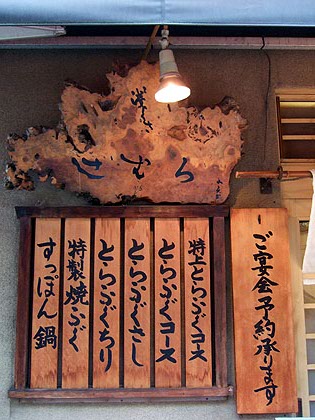 ご宴会予約承ります
特上とらふぐコース
とらふぐコース
とらふぐさし
とらふぐちり
特製焼ふぐ
すっぽん鍋